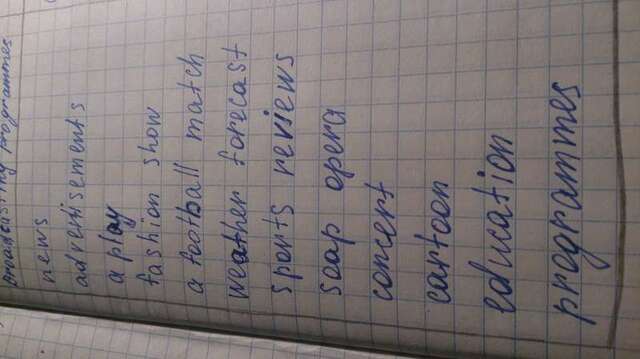 broadcasting programmes
news
advertisements
a play
fashion show
a football match
weather forecast
sports reviews
soap opera
concert
cartoon
education
programmes